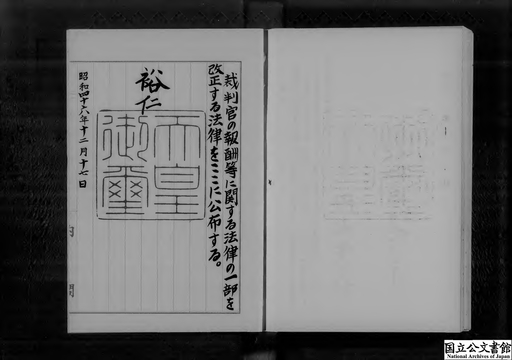 裁判官の報酬等に関する法律の一部を
改正する法律をここに公布する。
裕仁
天皇
御璽
昭和四十六年十二月十七日
国立公文書館
National Archives of Japan